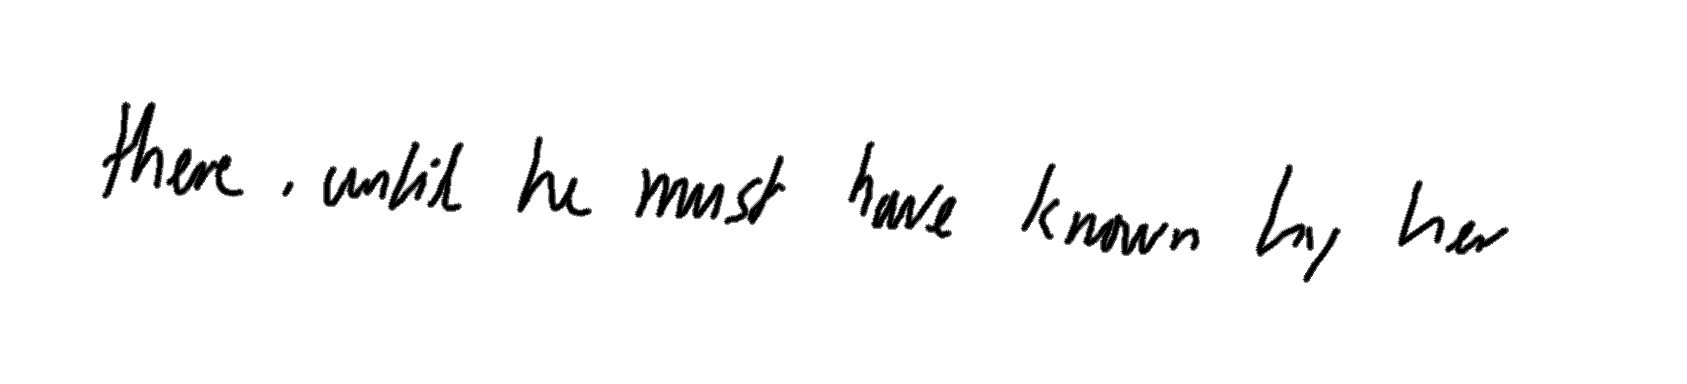 there , until he must have known by her